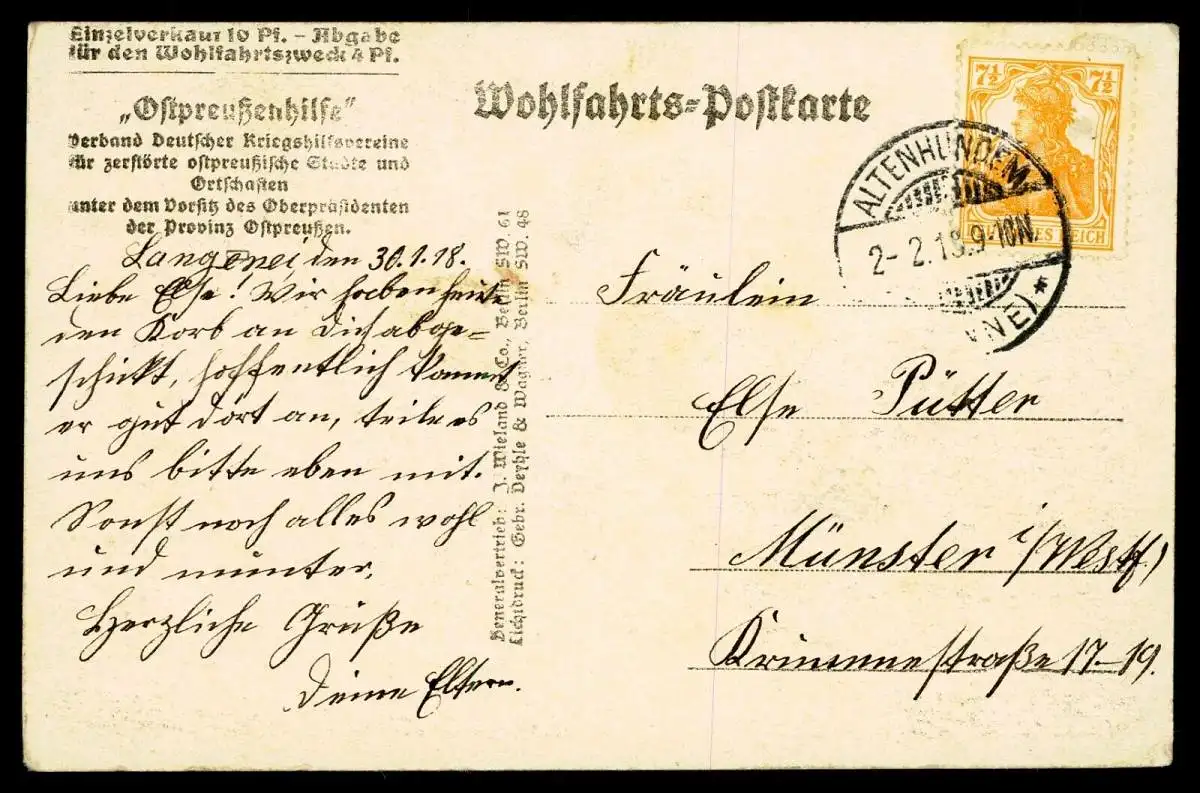 Einzelverkauf 10 Pf. – Abgabe
für den Wohlfahrtszweck 4 Pf.
„Ostpreußenhilfe“
Verband Deutscher Kriegshilfsvereine
für zerstörte ostpreußische Städte und
Ortschaften
unter dem Vorsitz des Oberpräsidenten
der Provinz Ostpreußen.
Langenei den 30.1.18.
Liebe Else! Wir haben heute
den Korb an Dich abge-
schickt, hoffentlich kommt
er gut dort an, teile es
uns bitte eben mit.
Sonst noch alles wohl
und munter.
Herzliche Grüße
Deine Eltern.
Generalvertrieb: J. Wieland & Co., Berlin SW. 61
Lichtdruck: Gebr. Deyhle & Wagner, Berlin SW. 48
Wohlfahrts-Postkarte
7½ 7½
DEUTSCHES REICH
ALTENHUNDEM
2-2.18.9-10N.
NE) *
Fräulein
Else Pütter
Münster i/Westf.)
17–19.